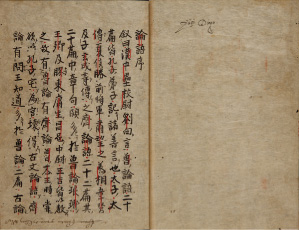 論語序
叙曰漢中壘校尉劉向言魯論語二十
篇皆孔子弟子記諸善言也太子太
傅夏侯勝前將軍蕭望之丞相韋賢
及子玄成等傳之齊論語二十二篇其
二十篇中章句頗多於魯論琅琊
王卿及膠東庸生昌邑中尉王吉皆以教
之故有魯論有齊論魯恭王時嘗
欲以孔子宅為宮壞得古文論語齊
論有問王知道多於魯論二篇古論